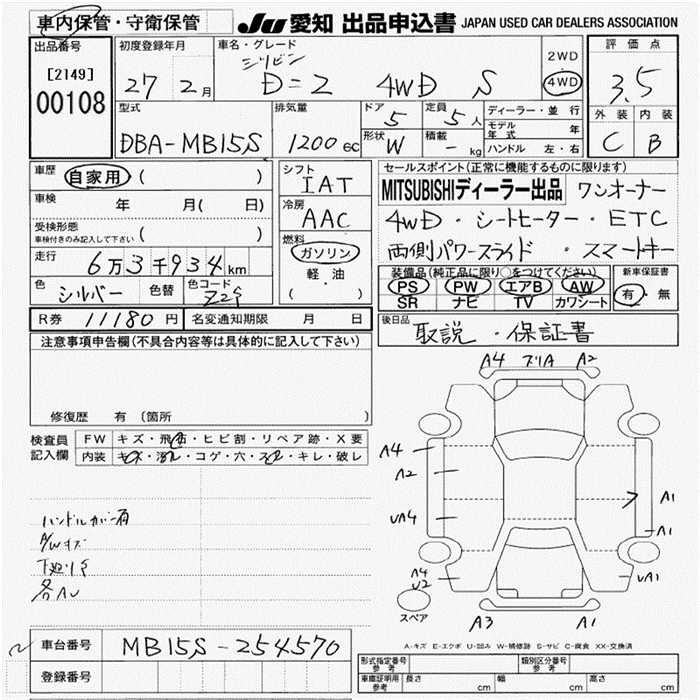 車内保管・守衛保管 JU 愛知 出品申込書 JAPAN USED CAR DEALERS ASSOCIATION
出品番号 初度登録年月 車名・グレード 評価点
[2149] 27 2月 D=2 4WD S 2WD 4WD 3.5
00108
型式 排気量 ドア 5 定員 5人 ディーラー・並行 外装 内装
DBA-MB15S 1200cc 形状 W 積載 - kg モデル年式 年 C B
ハンドル 左・右
車歴 自家用 ( ) シフト IAT セールスポイント(正常に機能するものに限ります)
車検 年 月( 日) 冷房 AAC MITSUBISHIディーラー出品 ワンオーナー
受検形態 ( ) 4WD・シートヒーター・ETC
車検付きのみ記入して下さい 燃料 ガソリン 両側パワースライド・スマートキー
走行 6万3千934km 軽油 ( )
装備品(純正品に限り○をつけてください) 新車保証書
色 シルバー 色替 色コード Z2S PS PW エアB AW 有・無
SR ナビ TV カワシート
R券 11180円 名変通知期限 月 日 後日品 取説・保証書
注意事項申告欄(不具合内容等は具体的に記入して下さい)
修復歴 有 (箇所 )
検査員記入欄 FW キズ・飛石・ヒビ割・リペア跡・X要
内装 キズ・コゲ・穴・キレ・破レ
A4 A2
A4
A2
UA4 A1
A1
A4 U2 UA1
A3 A1
スペア
A/Wキズ
A-キズ E-エクボ U-凹み W-補修跡 S-サビ C-腐食 XX-交換済
車台番号 MB15S-254570
登録番号
形式指定番号 参考 類別区分番号 参考
車庫証明用 参考 長さ cm 幅 cm 高さ cm